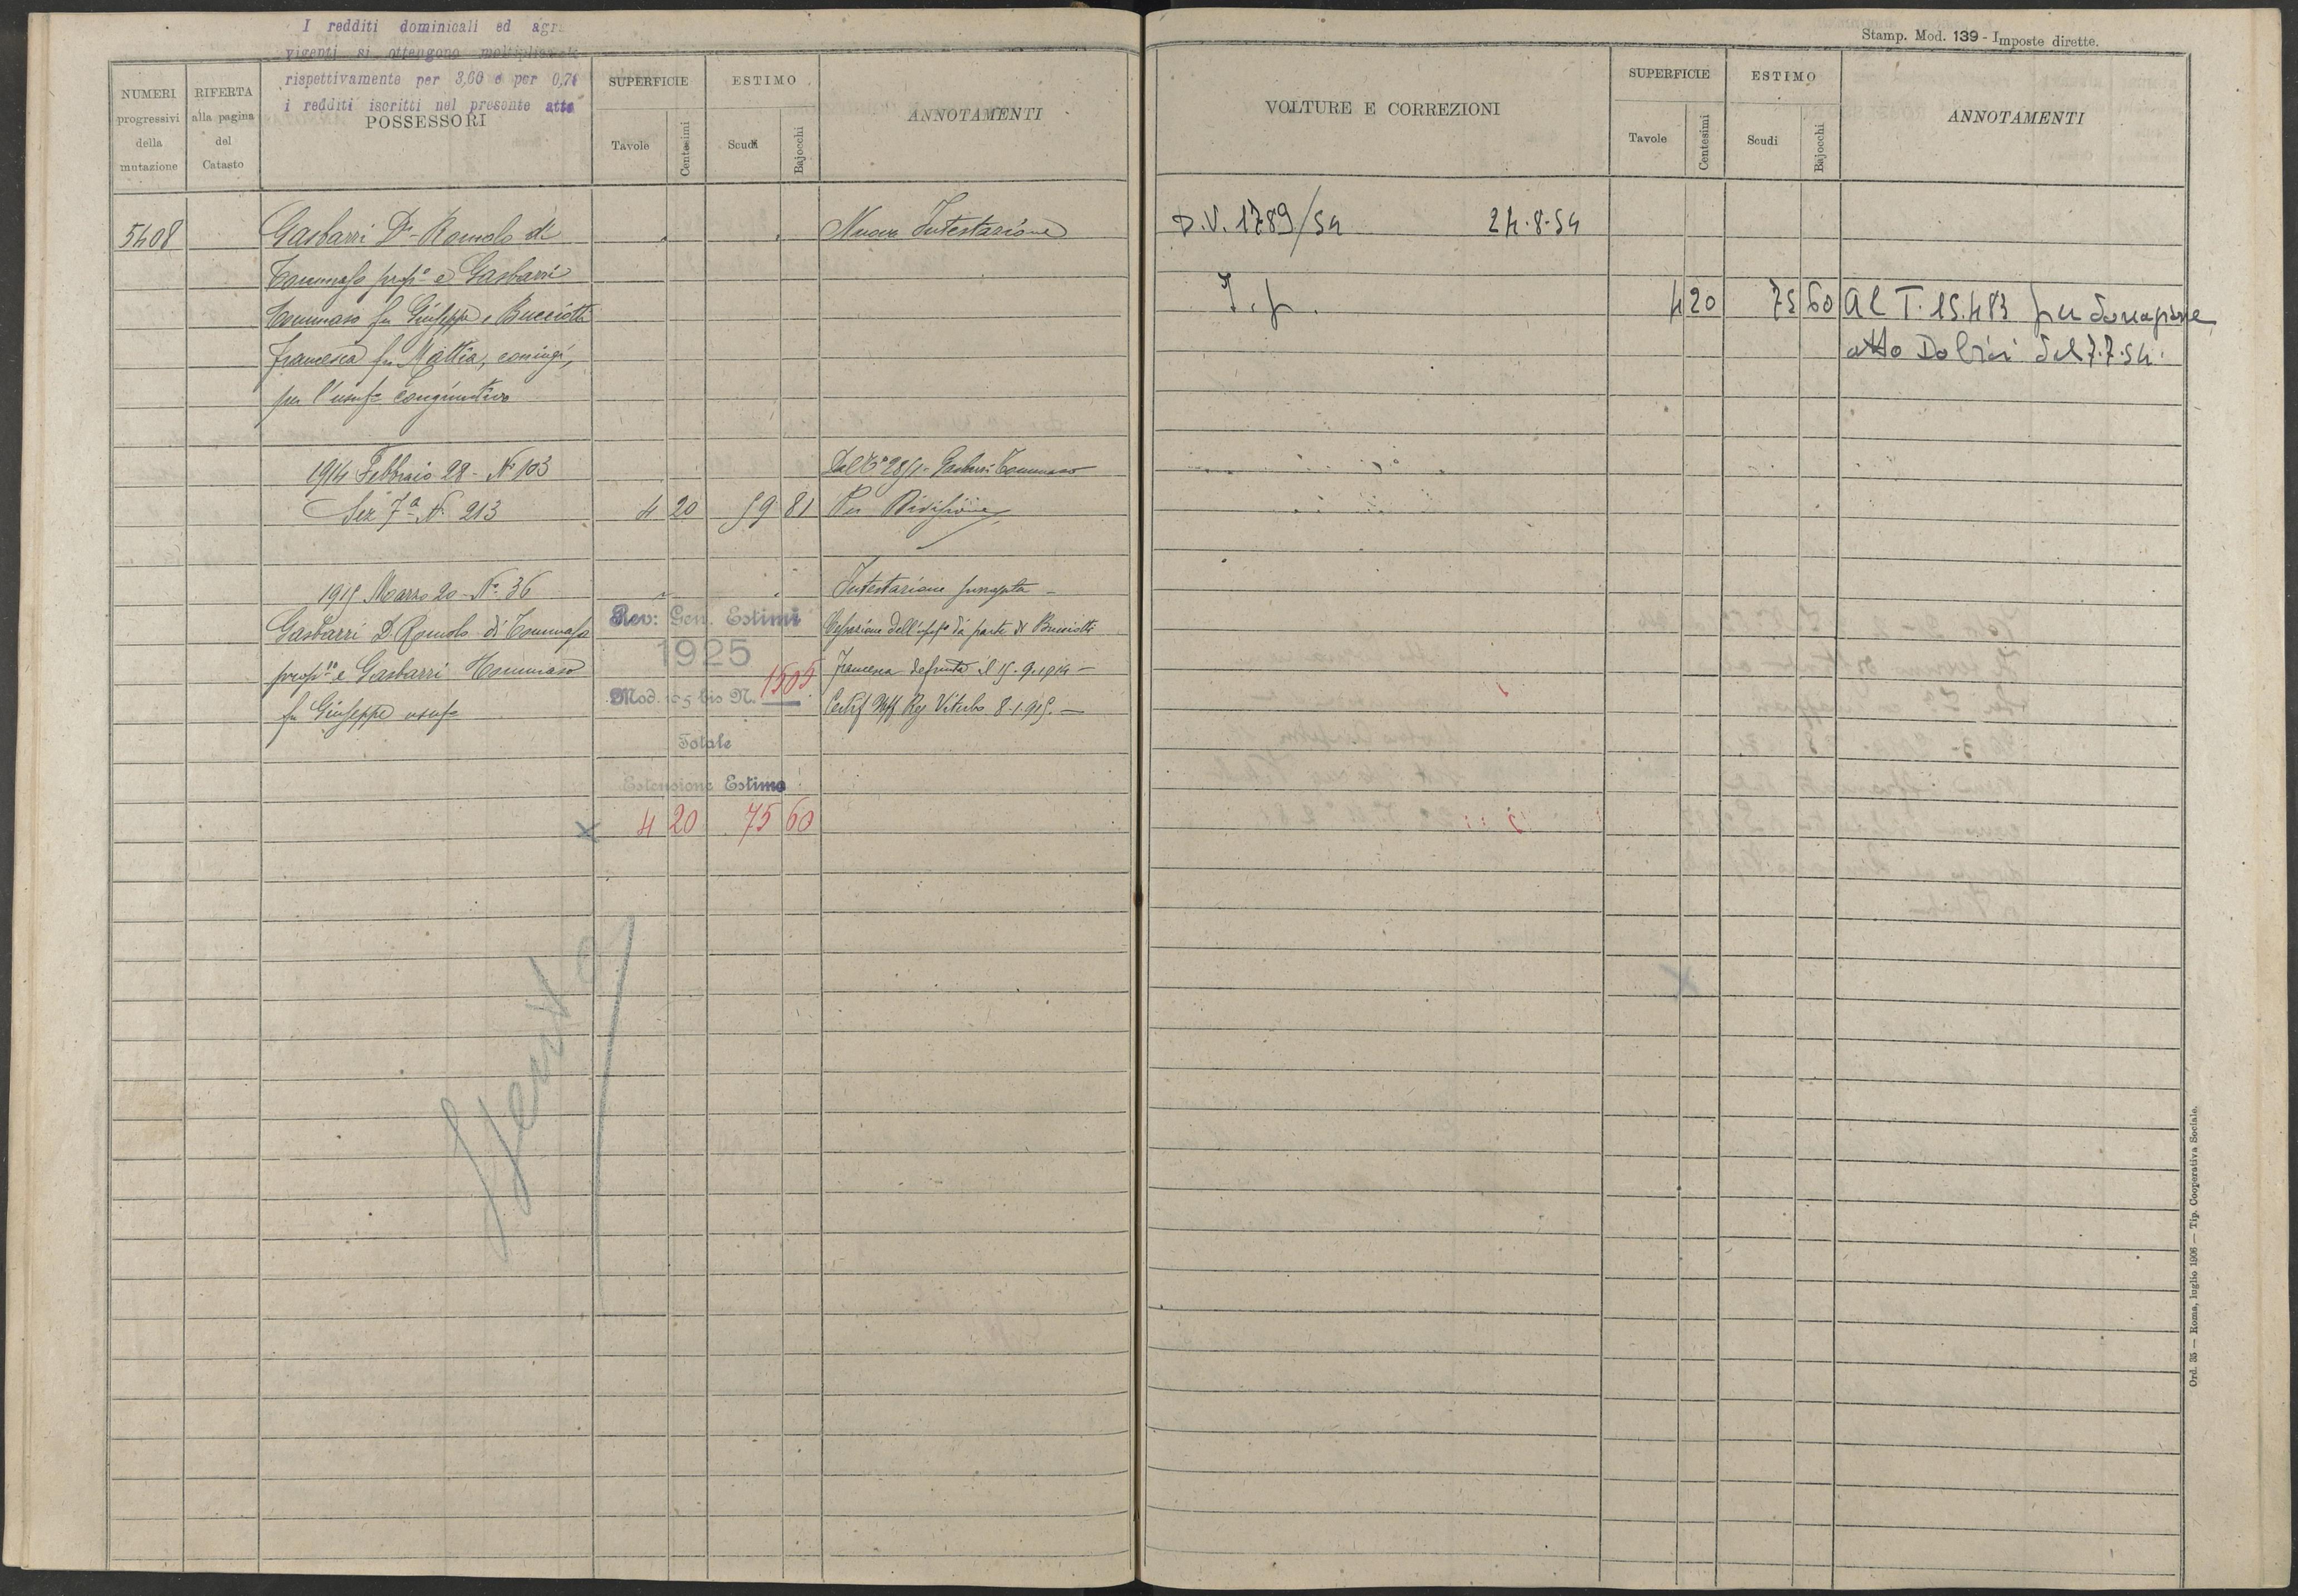 I redditi dominicali ed agr
vigenti si ottengono moltiplicando
rispettivamente per 3,60 e per 0,76
i redditi iscritti nel presente atto
NUMERI progressivi della mutazione
RIFERTA alla pagina del Catasto
POSSESSORI
SUPERFICIE
Tavole
Centesimi
ESTIMO
Scudi
Bajocchi
ANNOTAMENTI
5408
Gasbarri Dr Romolo di
Nuova Intestazione
Tommaso propo e Gasbarri
Tommaso fu Giuseppe e Bucciotti
Francesca fu Mattia, coniugi,
per l'usufo congiuntivo
1914 Febbraio 28 - No 103
Dal To Gasbarri Tommaso
Sez 7a No 213
4 20 59 81
Per Divisione
1915 Marzo 20 - No 36
Intestazione
Gasbarri D. Romolo di Tommaso
Cessazione dell'usufo da parte di Bucciotti
propo e Gasbarri Tommaso
Francesca defunta il 15.9.1914 -
fu Giuseppe usufo
Certif Uff Reg Viterbo 8-1-915. -
Rev: Gen. Estimi
1925
Mod. 105 bis N. 1505
Totale
Estensione Estimo
4 20 75 60
Stamp. Mod. 139 - Imposte dirette.
VOLTURE E CORREZIONI
SUPERFICIE
Tavole
Centesimi
ESTIMO
Scudi
Bajocchi
ANNOTAMENTI
D.V. 1789/54 24.8.54
4 20 75 60 Al T. 15.483 per donazione
atto Dobici del 7.7.54.
Ord. 35 — Roma, luglio 1906 — Tip. Cooperativa Sociale.